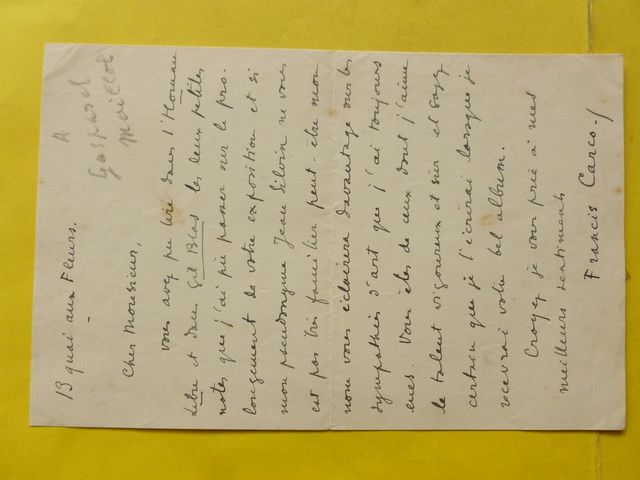 A
Gaspard
Maillol
13 quai aux Fleurs.
Cher Monsieur,
vous avez pu lire dans l'Homme
Libre et dans Gil Blas les deux petites
notes que j'ai pu passer sur le pro-
longement de votre exposition et si
mon pseudonyme Jean Silvain ne vous
est pas très familier peut-être mon
nom vous éclairera davantage sur les
sympathies d'art que j'ai toujours
eues. Vous êtes de ceux dont j'aime
le talent vigoureux et sûr et soyez
certain que je l'écrirai lorsque je
recevrai votre bel album.
Croyez je vous prie à mes
meilleurs sentiments
Francis Carco./